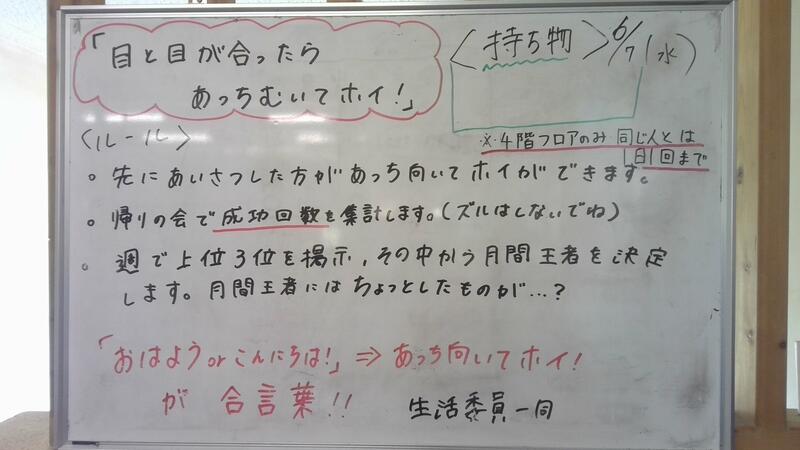 「目と目が合ったら
あっちむいてホイ!」
〈持ち物〉6/7(水)
〈ルール〉
※4階フロアのみ 同じ人とは
1日1回まで
。先にあいさつした方があっち向いてホイができます。
。帰りの会で成功回数を集計します。(ズルはしないでね)
。週で上位3位を掲示、その中から月間王者を決定
します。月間王者にはちょっとしたものが…?
「おはようorこんにちは!」⇒あっち向いてホイ!
が 合言葉!!
生活委員一同